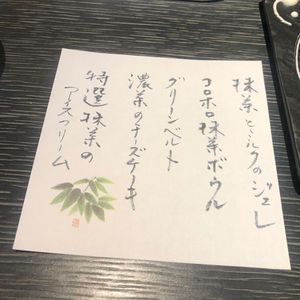 抹茶とミルクのジュレ
コロホロ抹茶ボウル
グリーンベルト
濃茶のチーズケーキ
特選抹茶の
アイスクリーム